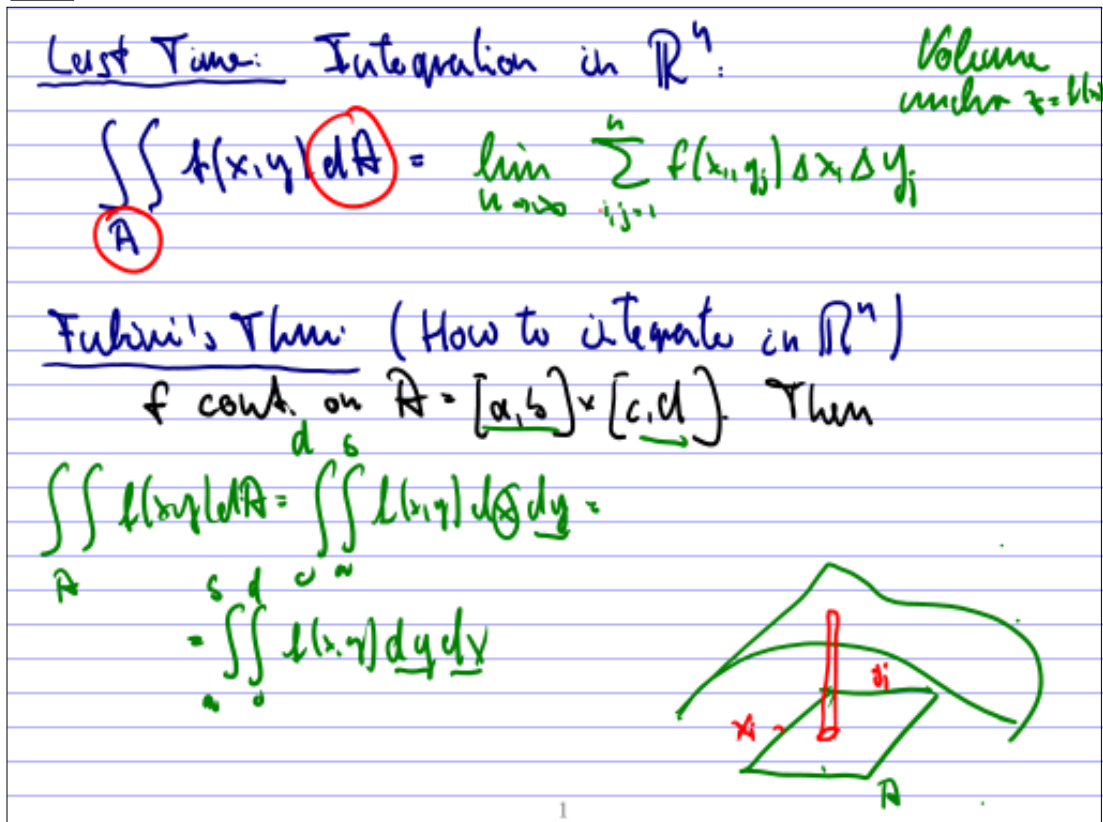 Last Time: Integration in ℝⁿ:
Volume
under z = f(x)
∬_A f(x,y) dA = lim_{n→∞} ∑_{i,j=1}^{n} f(x_i, y_j) Δx_i Δy_j
Fubini's Thm: (How to integrate in ℝⁿ)
f cont. on A = [a,b] × [c,d]. Then
∬_A f(x,y) dA = ∫_c^d ∫_a^b f(x,y) dx dy =
= ∫_a^b ∫_c^d f(x,y) dy dx
y_j
x_i
A
1